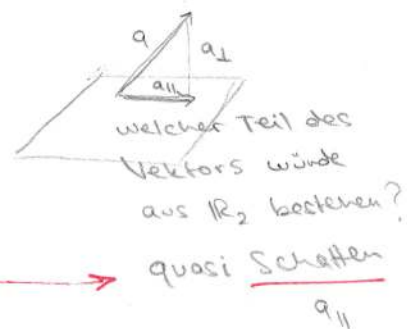 a a⊥
a||
welcher Teil des
Vektors würde
aus ℝ₂ bestehen?
quasi Schatten
a||